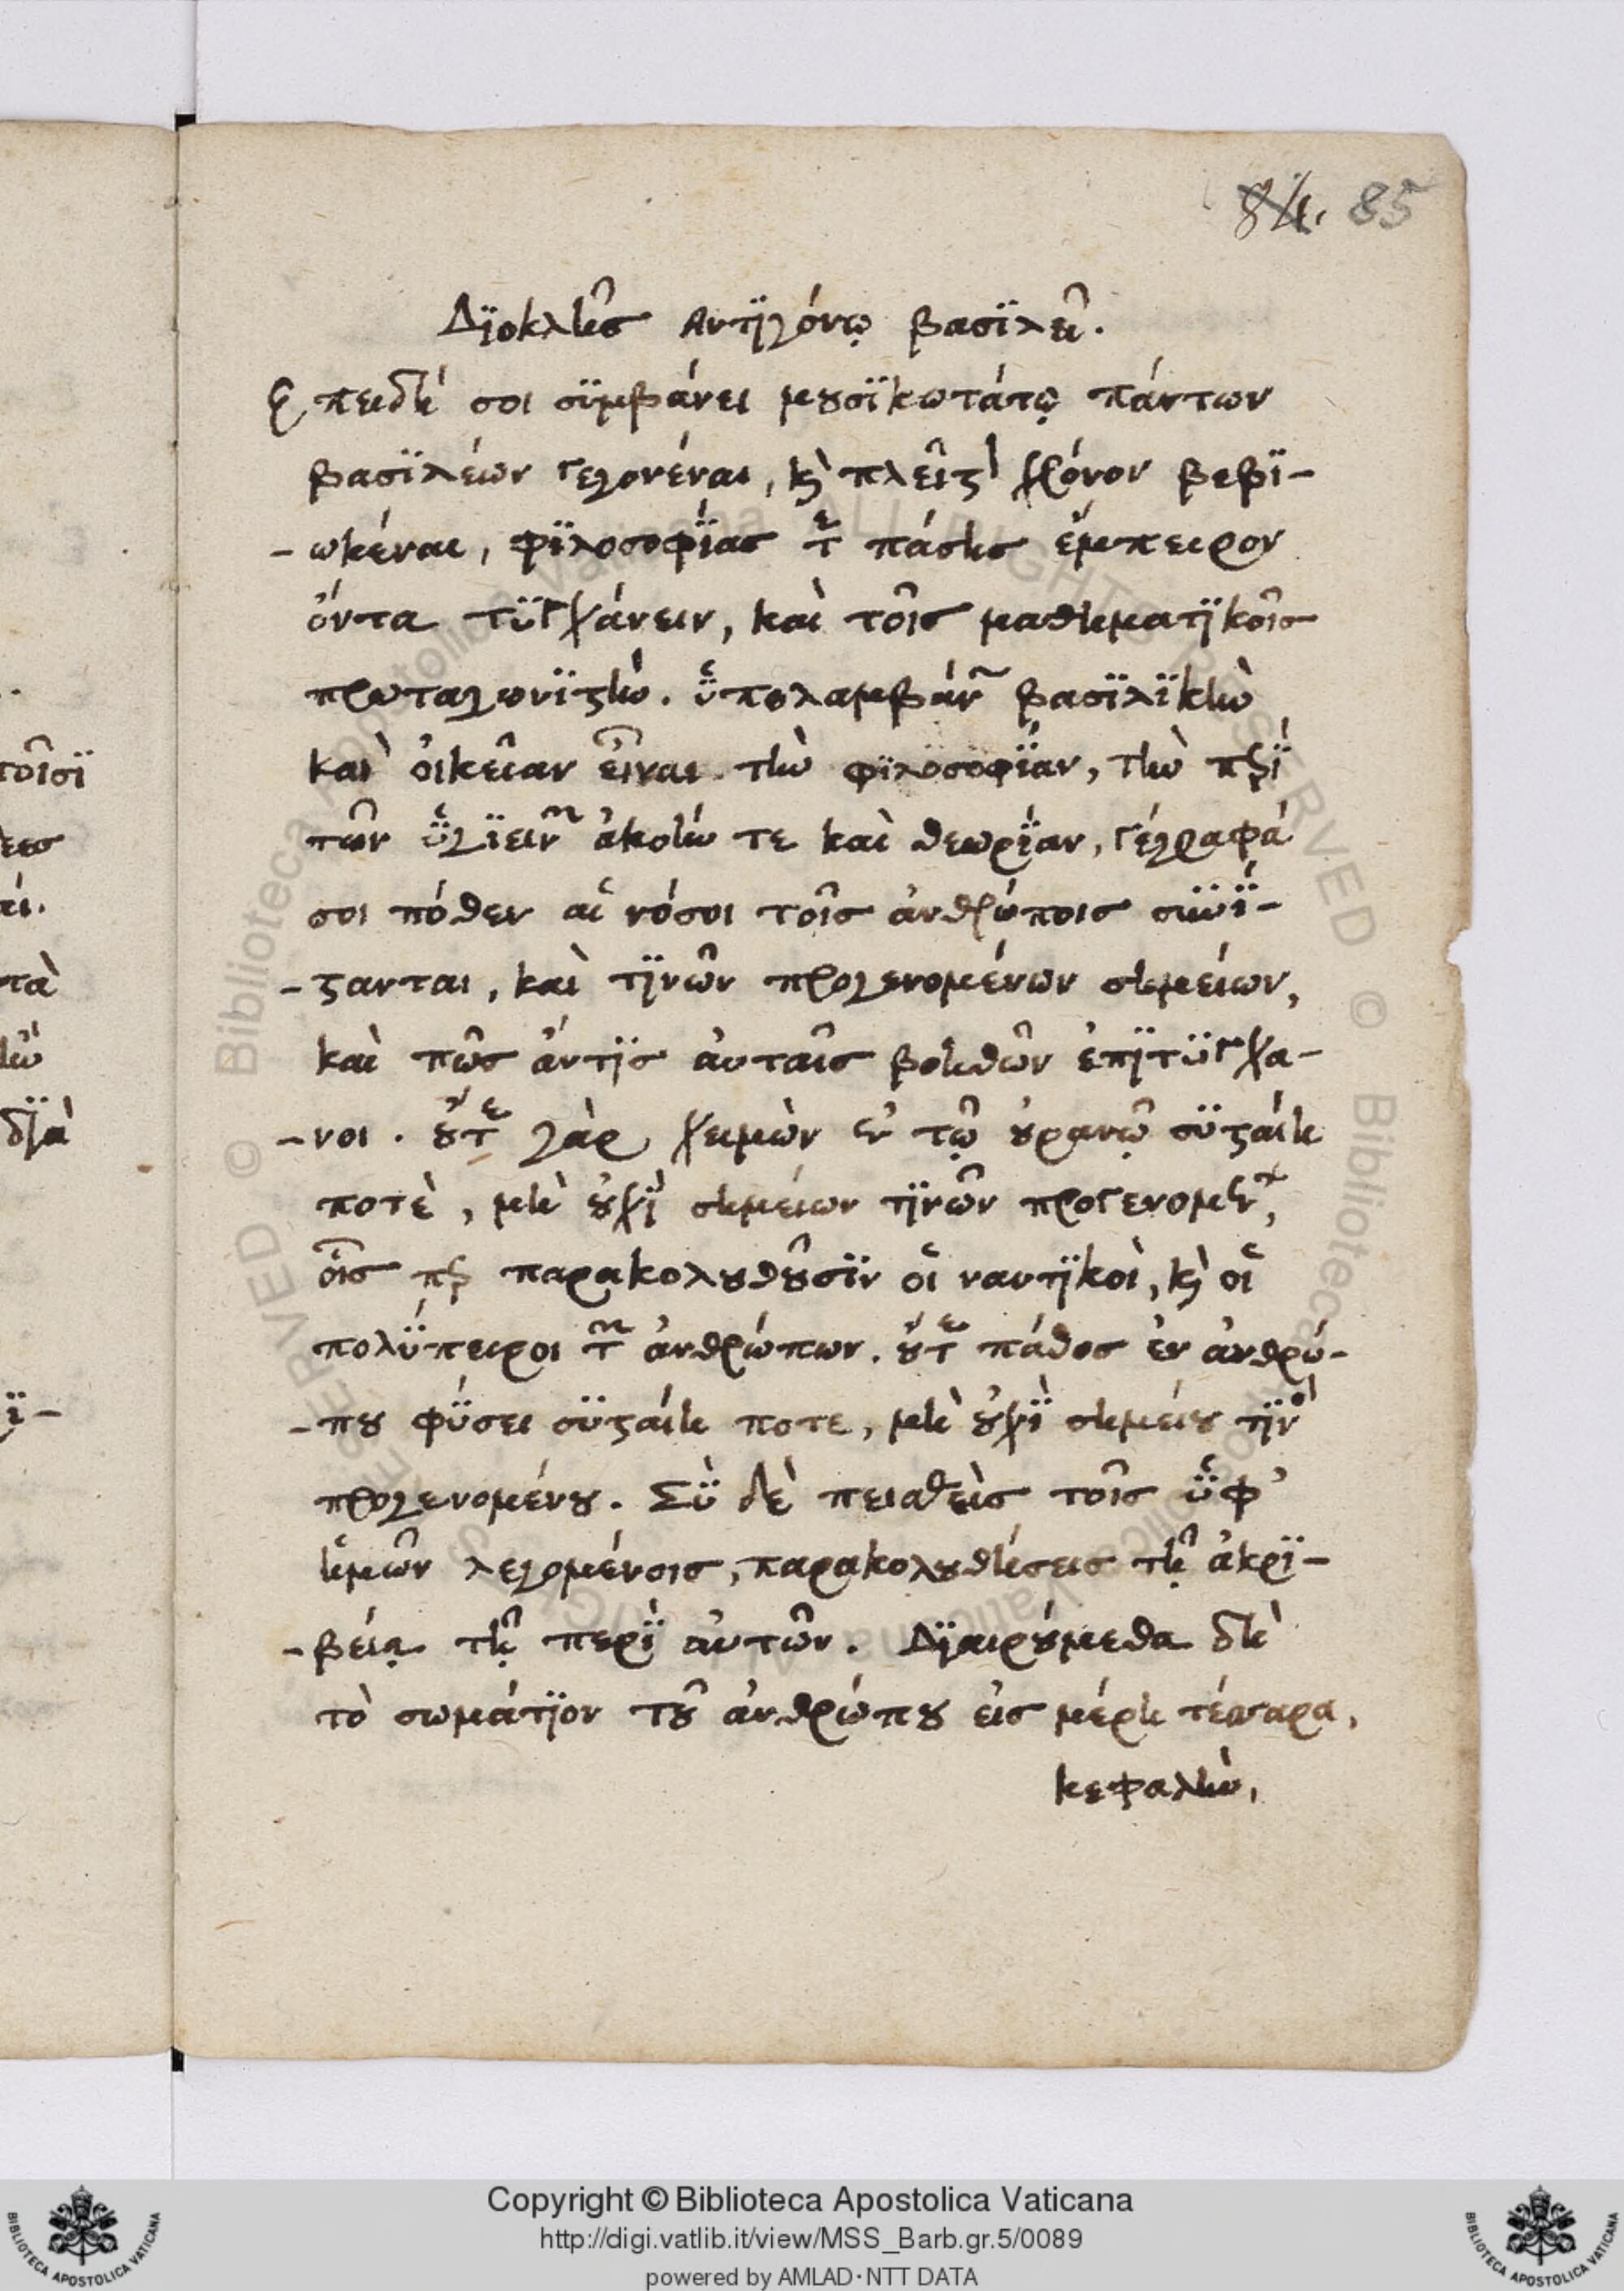 84. 85
Διοκλῆς Ἀντιγόνῳ βασιλεῖ.
Ἐπειδή σοι συμβάνει μουσικωτάτῳ πάντων
βασιλέων γεγονέναι, κ̀ πλεῖστ χρόνον βεβι-
-ωκέναι, φιλοσοφίας τε πάσης ἔμπειρον
ὄντα τυγχάνειν, καὶ τοῖς μαθηματικοῖς
πρωταγωνιστὴν. ὑπολαμβάν βασιλικὴν
καὶ οἰκείαν εἶναι τὴν φιλοσοφίαν, τὴν περί
τῶν ὑγιεινῶν ἀκοήν τε καὶ θεωρίαν, γέγραφά
σοι πόθεν αἱ νόσοι τοῖς ἀνθρώποις συνί-
-στανται, καὶ τινῶν προγενομένων σημείων,
καὶ πῶς ἄντις αὐταῖς βοηθῶν ἐπιτυγχα-
-νοι. οὔτε γὰρ χειμὼν ἐν τῷ οὐρανῷ συσταίη
ποτὲ, μὴ οὐχὶ σημείων τινῶν προγενομέν,
οἷς περ παρακολουθοῦσιν οἱ ναυτικοὶ, κ̀ οἱ
πολύπειροι τῶν ἀνθρώπων. οὔτε πάθος ἐν ἀνθρώ-
-που φύσει συσταίη ποτε, μὴ οὐχὶ σημείου τιν
προγενομένου. Σὺ δὲ πεισθεὶς τοῖς ὑφ'
ἡμῶν λεγομένοις, παρακολουθήσεις τῇ ἀκρι-
-βείᾳ τῇ περὶ αὐτῶν. Διαιρούμεθα δὴ
τὸ σωμάτιον τοῦ ἀνθρώπου εἰς μέρη τέσσαρα,
κεφαλὴν,
τοῖσι
τὰ
διὰ
Copyright © Biblioteca Apostolica Vaticana
http://digi.vatlib.it/view/MSS_Barb.gr.5/0089
powered by AMLAD·NTT DATA
BIBLIOTECA APOSTOLICA VATICANA
BIBLIOTECA APOSTOLICA VATICANA